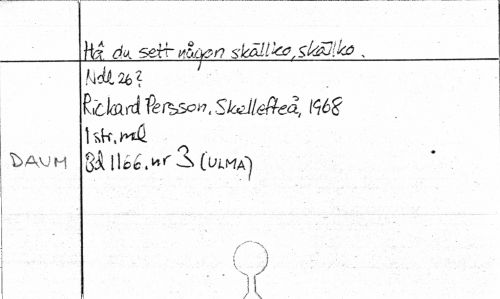 Hâ du sett någon skällko, skällko.
Ndl 26?
Rickard Persson, Skellefteå, 1968
1 str, mel
DAUM Bd 1166. nr 3 (ULMA)